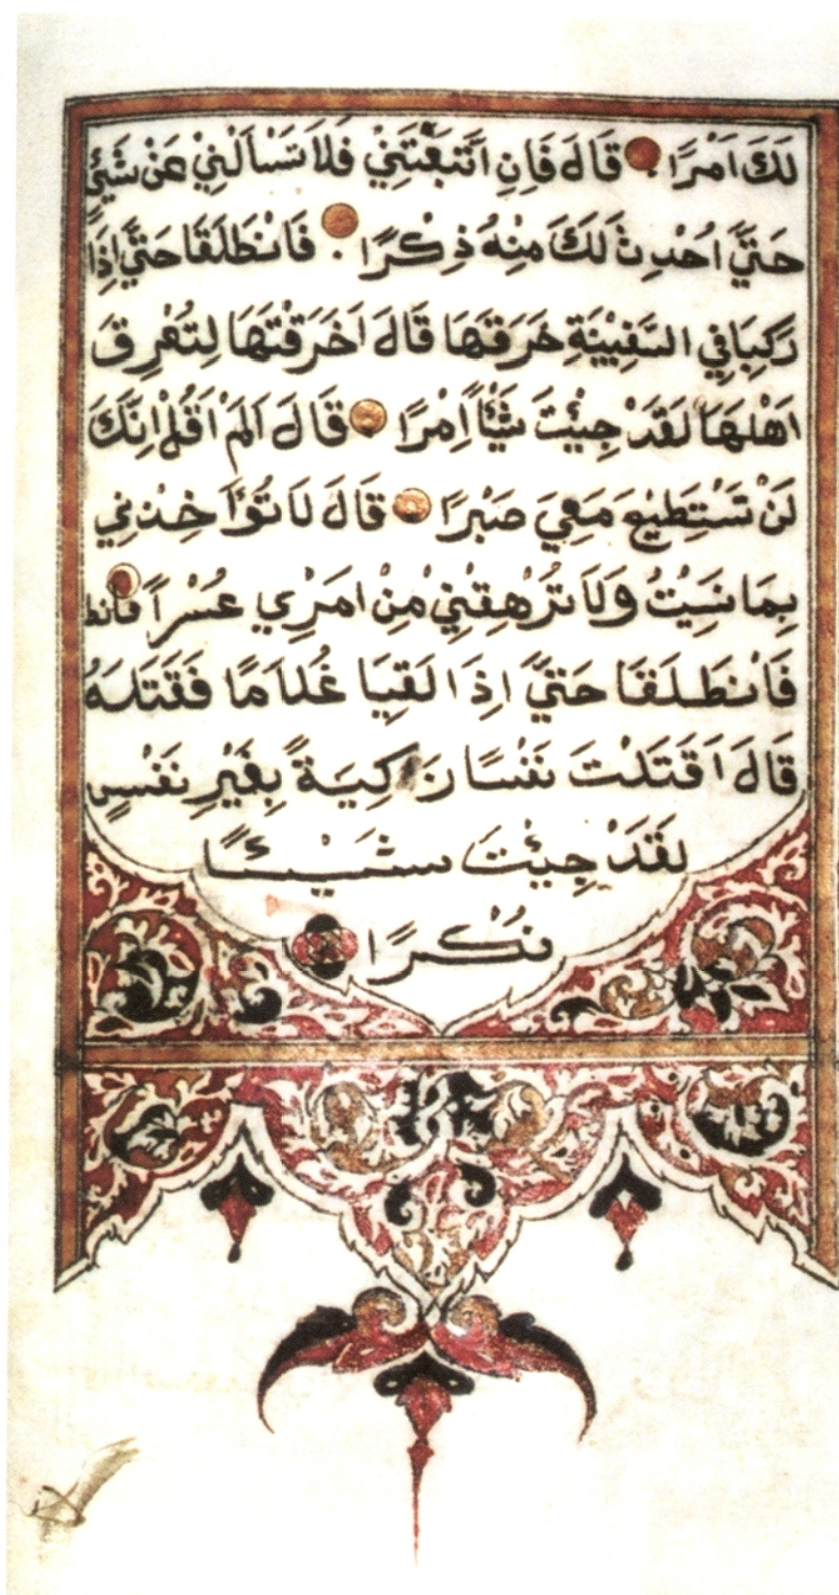 لَكَ اَمْرًا قَالَ فَاِنِ اتَّبَعْتَنِيْ فَلَا تَسْاَلْنِيْ عَنْ شَيْءٍ
حَتّٰٓي اُحْدِثَ لَكَ مِنْهُ ذِكْرًا فَانْطَلَقَا حَتّٰٓي اِذَا
رَكِبَا فِي السَّفِيْنَةِ خَرَقَهَا قَالَ اَخَرَقْتَهَا لِتُغْرِقَ
اَهْلَهَا لَقَدْ جِئْتَ شَيْـًٔا اِمْرًا قَالَ اَلَمْ اَقُلْ اِنَّكَ
لَنْ تَسْتَطِيْعَ مَعِيَ صَبْرًا قَالَ لَا تُؤَاخِذْنِي
بِمَا نَسِيْتُ وَلَا تُرْهِقْنِيْ مِنْ اَمْرِي عُسْرًا فانط
فَانْطَلَقَا حَتّٰٓي اِذَا لَقِيَا غُلَامًا فَقَتَلَهُ
قَالَ اَقَتَلْتَ نَفْسًا زَكِيَةً بِغَيْرِ نَفْسٍ
لَقَدْ جِئْتَ شَيْـئًا
نُكْرًا